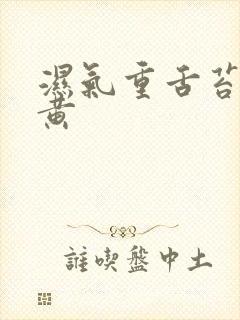 濕氣重舌苔
黄
誰喫盤中土